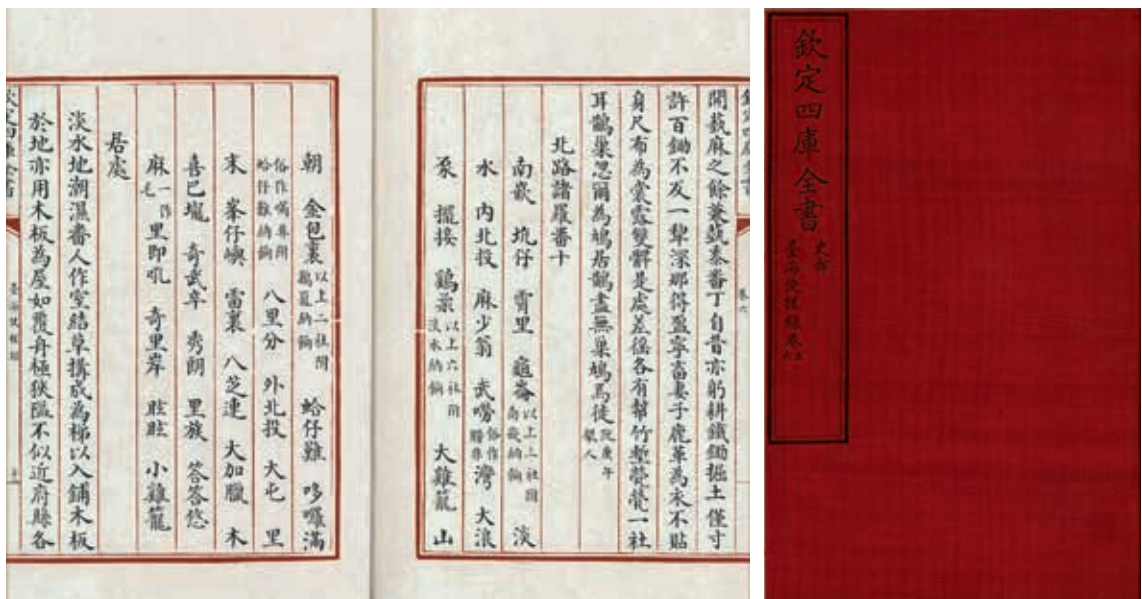 欽定四庫全書
史部
臺海使槎錄卷五六
卷六
開蓺麻之餘兼蓺黍番丁自昔亦躬耕鐵鋤掘土僅寸
許百鋤不及一犂深那得盈寧畜妻子鹿革為衣不貼
身尺布為裳露雙髀是處差徭各有幫竹塹煢煢一社
耳鵲巢忽爾為鳩居鵲盡無巢鳩焉徙
北路諸羅番十
南嵌 坑仔 霄里 龜崙以上三社附南嵌納餉 淡
水 內北投 麻少翁 武嘮俗作朥非灣 大浪
泵 擺接 鷄柔以上六社附淡水納餉 大雞籠 山
朝 金包裹以上二社附鷄籠納餉 蛤仔難 哆囉滿
蛤仔難納餉 八里分 外北投 大屯 里
末 峯仔嶼 雷裏 八芝連 大加臘 木
喜巴壠 奇武卒 秀朗 里族 答答悠
麻一作毛里即吼 奇里岸 眩眩 小雞籠
居處
淡水地潮濕番人作室結草搆成為梯以入鋪木板
於地亦用木板為屋如覆舟極狹隘不似近府縣各